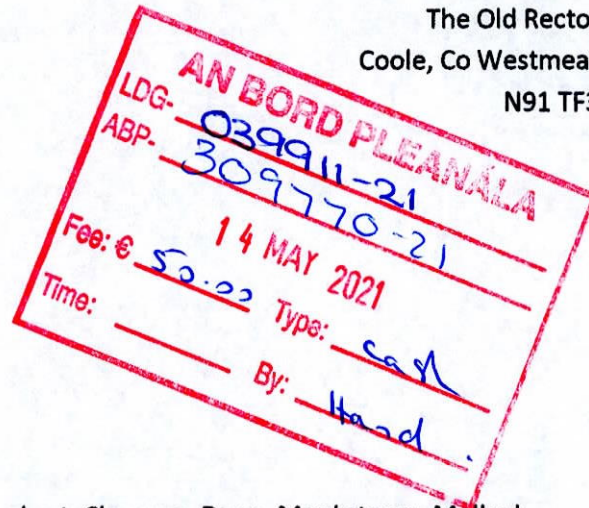 The Old Recto
Coole, Co Westmea
N91 TF3
AN BORD PLEANÁLA
LDG- 039911-21
ABP- 309770-21
14 MAY 2021
Fee: € 50.00 Type: cash
Time: By: Hand.